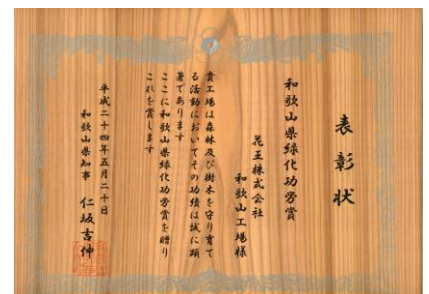 表彰状
和歌山県緑化功労賞
花王株式会社
和歌山工場様
貴工場は森林及び樹木を守り育て
る活動においてその功績は誠に顕
著であります
ここに和歌山県緑化功労賞を贈り
これを賞します
平成二十四年五月二十日
和歌山県知事 仁坂吉伸